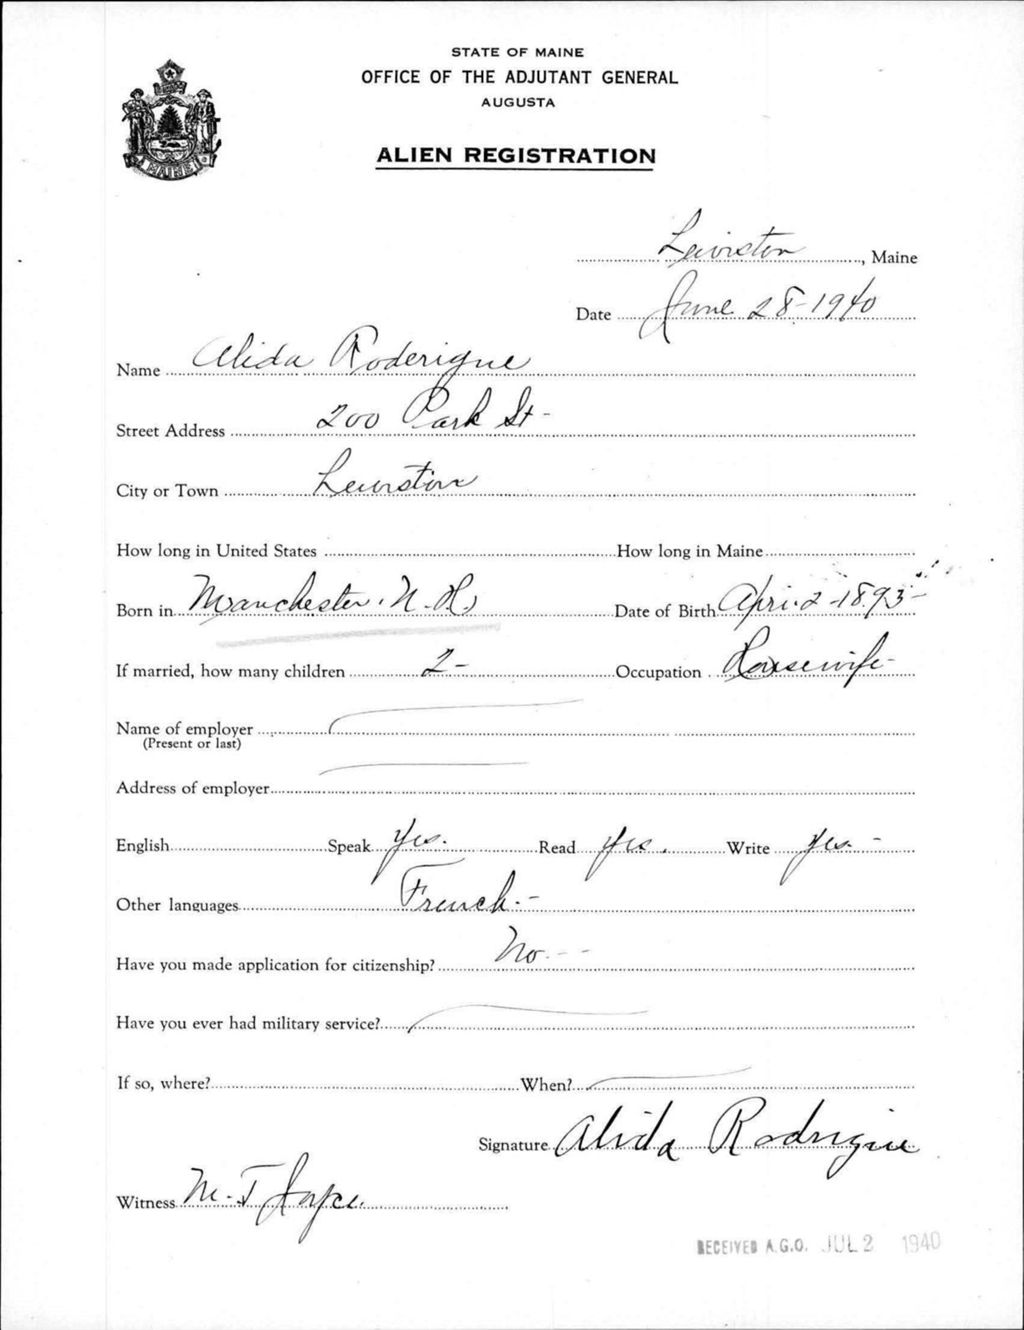 STATE OF MAINE
OFFICE OF THE ADJUTANT GENERAL
AUGUSTA
ALIEN REGISTRATION
Lewiston, Maine
Date June 28-1940
Name Alida Roderigue
Street Address 200 Park St-
City or Town Lewiston
How long in United States How long in Maine
Born in Manchester, N.H. Date of Birth Apri. 2-1893-
If married, how many children 2- Occupation Housewife-
Name of employer
(Present or last)
Address of employer
English Speak Yes. Read Yes. Write Yes.-
Other languages French.-
Have you made application for citizenship? No.--
Have you ever had military service?
If so, where? When?
Signature Alida Rodrigue
Witness M. T. Joyce
MAINE
RECEIVED A.G.O. JUL 2 1940